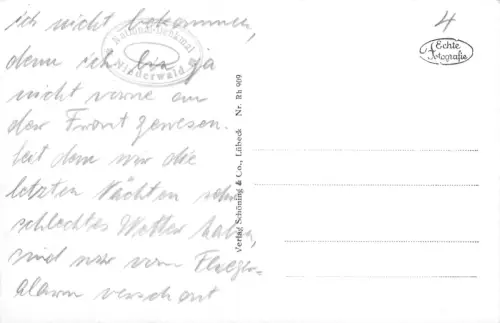 ich nicht bekommen,
denn ich bin ja
nicht vorne an
der Front gewesen.
Seit dem wir die
letzten Nächten sehr
schlechtes Wetter haben,
sind wir vom Flieger-
alarm verschont
National-Denkmal
Niederwald
Verlag Schöning & Co., Lübeck Nr. Rh 909
4
Echte
Fotografie